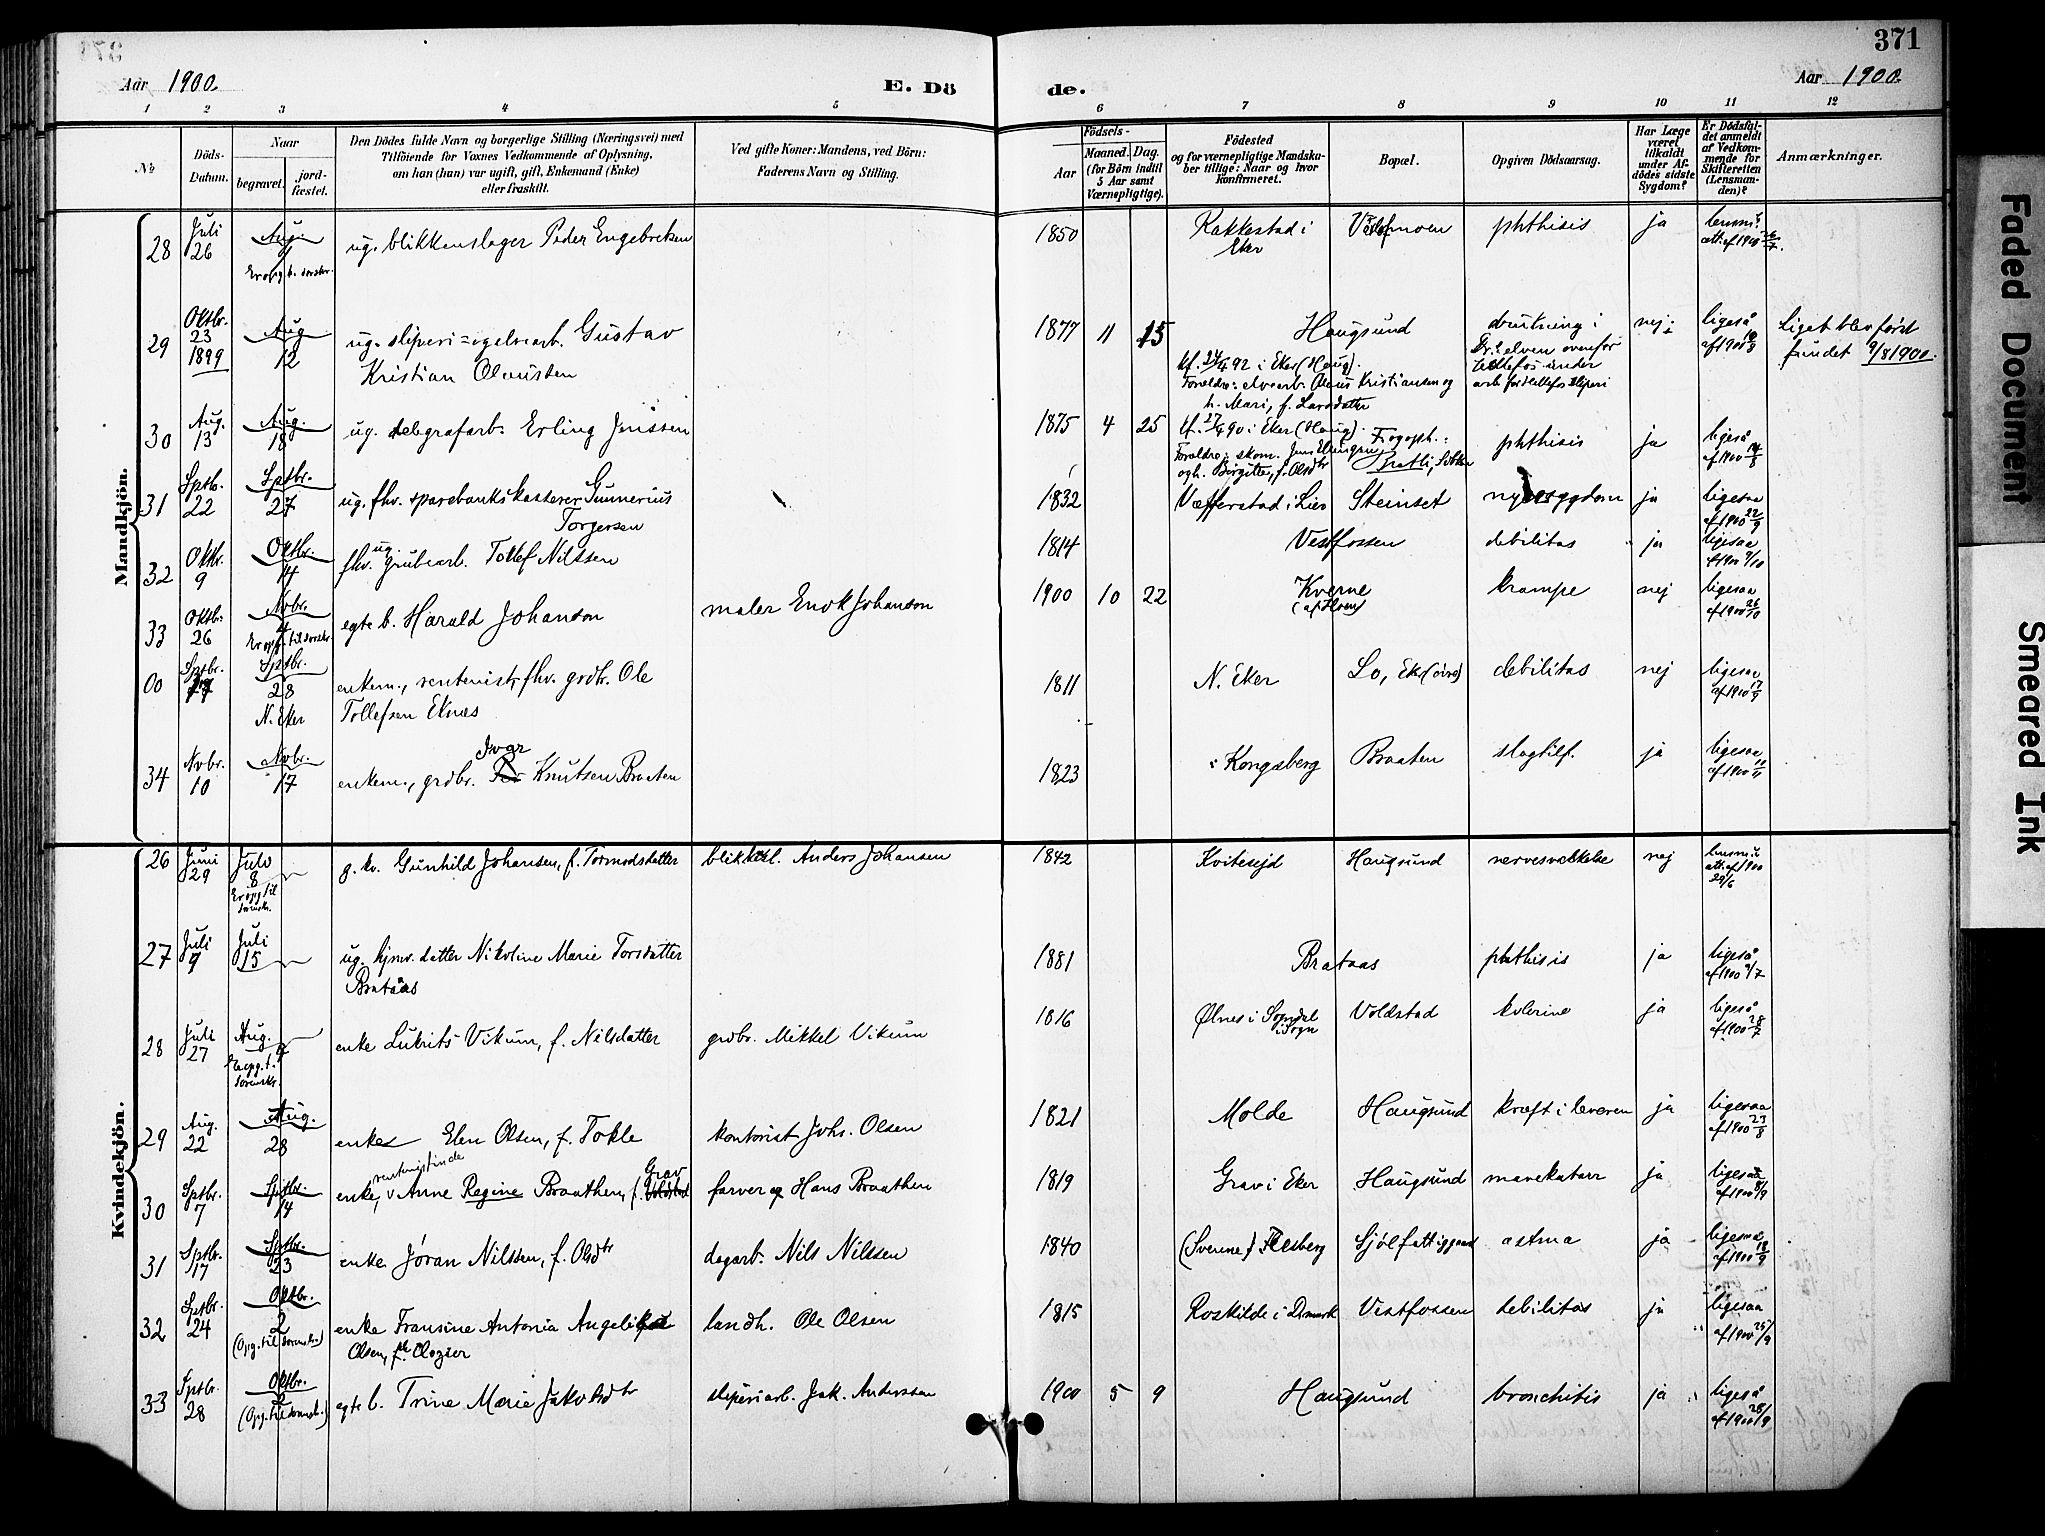 371
Aar 1900.
E. Dö
de.
Aar 1900.
1 2 3 4 5 6 7 8 9 10 11 12
No
Döds-Datum.
Naar
begravet.
jordfæstet.
Den Dödes fulde Navn og borgerlige Stilling (Næringsvei) med
Tilföiende for Voxnes Vedkommende af Oplysning,
om han (hun) var ugift, gift, Enkemand (Enke)
eller fraskilt.
Ved gifte Koner: Mandens, ved Börn:
Faderens Navn og Stilling.
Födsels-
Aar
Maaned. Dag.
(for Börn indtil
5 Aar samt
Værnepligtige).
Födested
og for værnepligtige Mandskaber tillige: Naar og hvor
konfirmeret.
Bopæl.
Opgiven Dödsaarsag.
Har Læge været tilkaldt under Afdödes sidste Sygdom?
Er Dödsfaldet anmeldt af Vedkommende for Skifteretten (Lensmanden)?
Anmærkninger.
Mandkjön.
28 Juli 26 Aug. ug. blikkenslager Peder Engebretsen 1850 Rakkestad i Eker phthisis ja
29 Oktbr. 23 1899 Aug 12 ug. sliperi= ogelvearb. Gustav
Kristian Olausten 1877 11 15 Haugsund drukning i nej ligeså Liget blev först
fundet 9/8 1900.
Kf. i Eker (Haug).
Foreldre: elvearb. Olaus Kristiansen og
h. Mari, f. Larsdatter
30 Aug. 13 Aug. 18 ug. telegrafarb. Erling Jenssen 1875 4 25 kf. i Eker (Haug). phthisis ja ligeså
31 Sptb. 22 Sptbr. 27 ug. fhv. sparebankskasserer Gunnerius
Torgersen 1832 i Lier Steinset nyresygdom ja ligesaa af 1900 22/9
32 Oktbr. 9 Oktbr. 14 fhv. ug. grubearb. Tollef Nilssen 1814 Vestfossen debilitas ja ligesaa af 1900 9/10
33 Oktbr. 26 Novbr. 4 egte b. Harald Johanson maler Enok Johanson 1900 10 22 Kverne krampe nej ligesaa af 1900 26/10
00 Sptbr. 17 Sptbr. 28 N. Eker enkem., rentenist, fhv. grdbr. Ole
Tollefsen Eknes 1811 N. Eker Lo, Eker (övre) debilitas nej ligesaa af 1900 17/9
34 Novbr. 10 Novbr. 17 enkem., grdbr. Ivar Knutsen Braaten 1823 Kongsberg Braaten slagtilf. ja ligesaa af 1900
Kvindekjön.
26 Juni 29 8 g. kv. Gunhild Johansen, f. Tormodsdatter Anders Johansen 1842 Kviteseid Haugsund nervesvekkelse nej 29/6
27 Juli 9 Juli 15 ug. hjmv. datter Nikoline Marie Torsdatter
Brataas 1881 Brataas phthisis ja ligeså af 1900 9/7
28 Juli 27 Aug. enke Vikum, f. Nilsdatter grdbr. Mikkel Vikum 1816 Ølnes i Sogndal i Sogn Voldstad kolerine ja ligeså af 1900 28/7
29 Aug. 22 Aug. 28 enke Elen Olsen, f. Tokle kontorist Johs. Olsen 1821 Molde Haugsund kreft i leveren ja ligesaa af 1900 23/8
30 Sptbr. 7 Sptbr. 14 enke, rentenistinde Anne Regine Braathen, f. Grav farver Hans Braathen 1819 Grav i Eker Haugsund mavekatarr ja ligesaa af 1900 8/9
31 Sptbr. 17 Sptbr. 23 enke Jøran Nilssen, f. Olsdtr dagarb. Nils Nilssen 1840 Flesberg astma ja ligesaa af 1900 18/9
32 Sptbr. 24 Oktbr. 2 enke Fransine Antonia Angelika
Olsen, landh. Ole Olsen 1815 Roskilde i Dmark Vestfossen debilitas ja ligesaa af 1900 25/9
33 Sptbr. 28 Oktbr. 2 egte b. Trine Marie Jakobsdtr sliperiarb. Jak. Anderssen 1900 5 9 Haugsund bronchitis ja ligeså af 1900 28/9
Faded Document
Smeared Ink